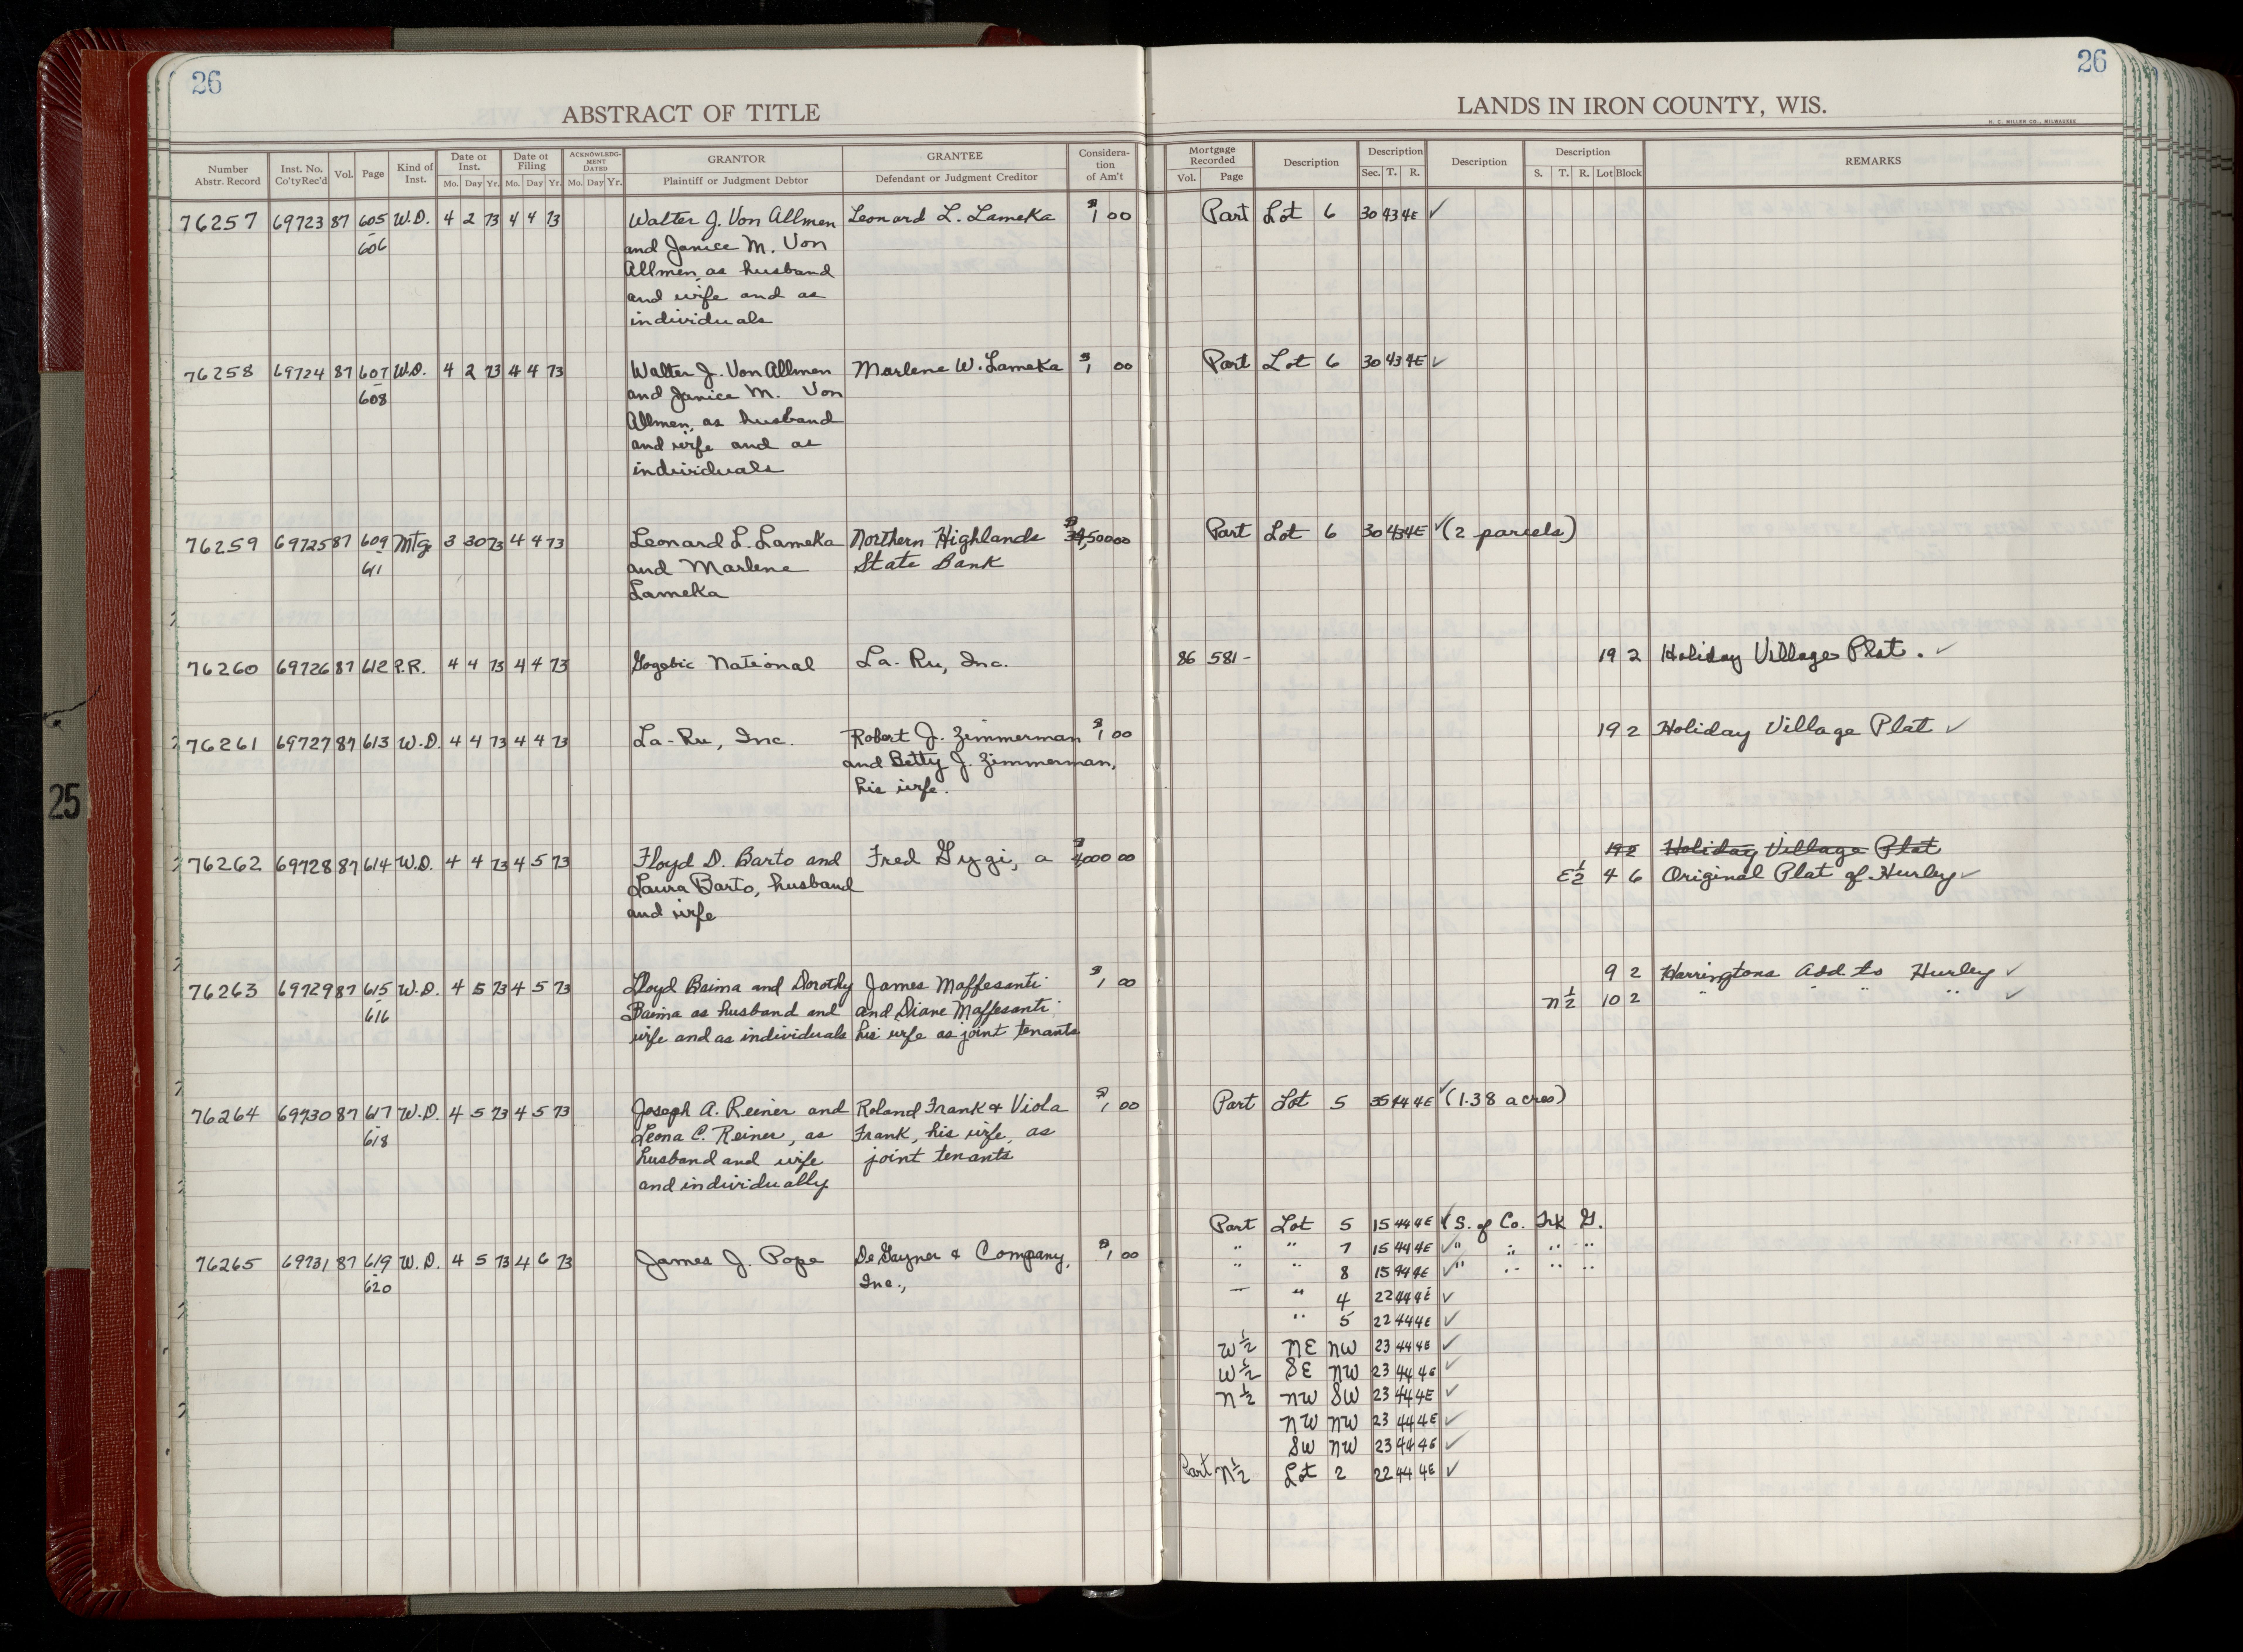 26
26
ABSTRACT OF TITLE
LANDS IN IRON COUNTY, WIS.
H. C. MILLER CO., MILWAUKEE
Number Abstr. Record Inst. No. Co'ty Rec'd Vol. Page Kind of Inst. Date of Inst. Mo. Day Yr. Date of Filing Mo. Day Yr. ACKNOWLEDGMENT DATED Mo. Day Yr. GRANTOR Plaintiff or Judgment Debtor GRANTEE Defendant or Judgment Creditor Consideration of Am't Mortgage Recorded Vol. Page Description Description Sec. T. R. Description Description S. T. R. Lot Block REMARKS
76257 69723 87 605 W.D. 4 2 73 4 4 73 Walter J. Von Allmen Leonard L. Lameka $1 00 Part Lot 6 30 43 4E ✓
606 and Janice M. Von
Allmen, as husband
and wife and as
individuals
76258 69724 87 607 W.D. 4 2 73 4 4 73 Walter J. Von Allmen Marlene W. Lameka $1 00 Part Lot 6 30 43 4E ✓
608 and Janice M. Von
Allmen, as husband
and wife and as
individuals
76259 69725 87 609 Mtg 3 30 73 4 4 73 Leonard L. Lameka Northern Highlands 34,500 00 Part Lot 6 30 43 4E ✓ (2 parcels)
611 and Marlene State Bank
Lameka
76260 69726 87 612 P.R. 4 4 73 4 4 73 Gogebic National La-Ru, Inc. 86 581- 19 2 Holiday Village Plat. ✓
76261 69727 87 613 W.D. 4 4 73 4 4 73 La-Ru, Inc. Robert J. Zimmerman $1 00 19 2 Holiday Village Plat ✓
and Betty J. Zimmerman,
his wife.
25
19 2 Holiday Village Plat
76262 69728 87 614 W.D. 4 4 73 4 5 73 Floyd D. Barto and Fred Gygi, a $4000 00 E½ 4 6 Original Plat of Hurley ✓
Laura Barto, husband
and wife
76263 69729 87 615 W.D. 4 5 73 4 5 73 Lloyd Baima and Dorothy James Maffesanti $1 00 9 2 Harringtons Add to Hurley ✓
616 Baima as husband and and Diane Maffesanti N½ 10 2 " " " " ✓
wife and as individuals his wife as joint tenants
76264 69730 87 617 W.D. 4 5 73 4 5 73 Joseph A. Reiner and Roland Frank & Viola $1 00 Part Lot 5 35 44 4E ✓ (1.38 acres)
618 Leona C. Reiner, as Frank, his wife, as
husband and wife joint tenants
and individually
Part Lot 5 15 44 4E ✓ S. of Co. Trk G.
76265 69731 87 619 W.D. 4 5 73 4 6 73 James J. Pope DeGayner & Company, $1 00 " " 7 15 44 4E ✓ " " " "
620 Inc., " " 8 15 44 4E ✓ " " " "
" 4 22 44 4E ✓
" 5 22 44 4E ✓
W½ NE NW 23 44 4E ✓
W½ SE NW 23 44 4E ✓
N½ NW SW 23 44 4E ✓
NW NW 23 44 4E ✓
SW NW 23 44 4E ✓
Part N½ Lot 2 22 44 4E ✓